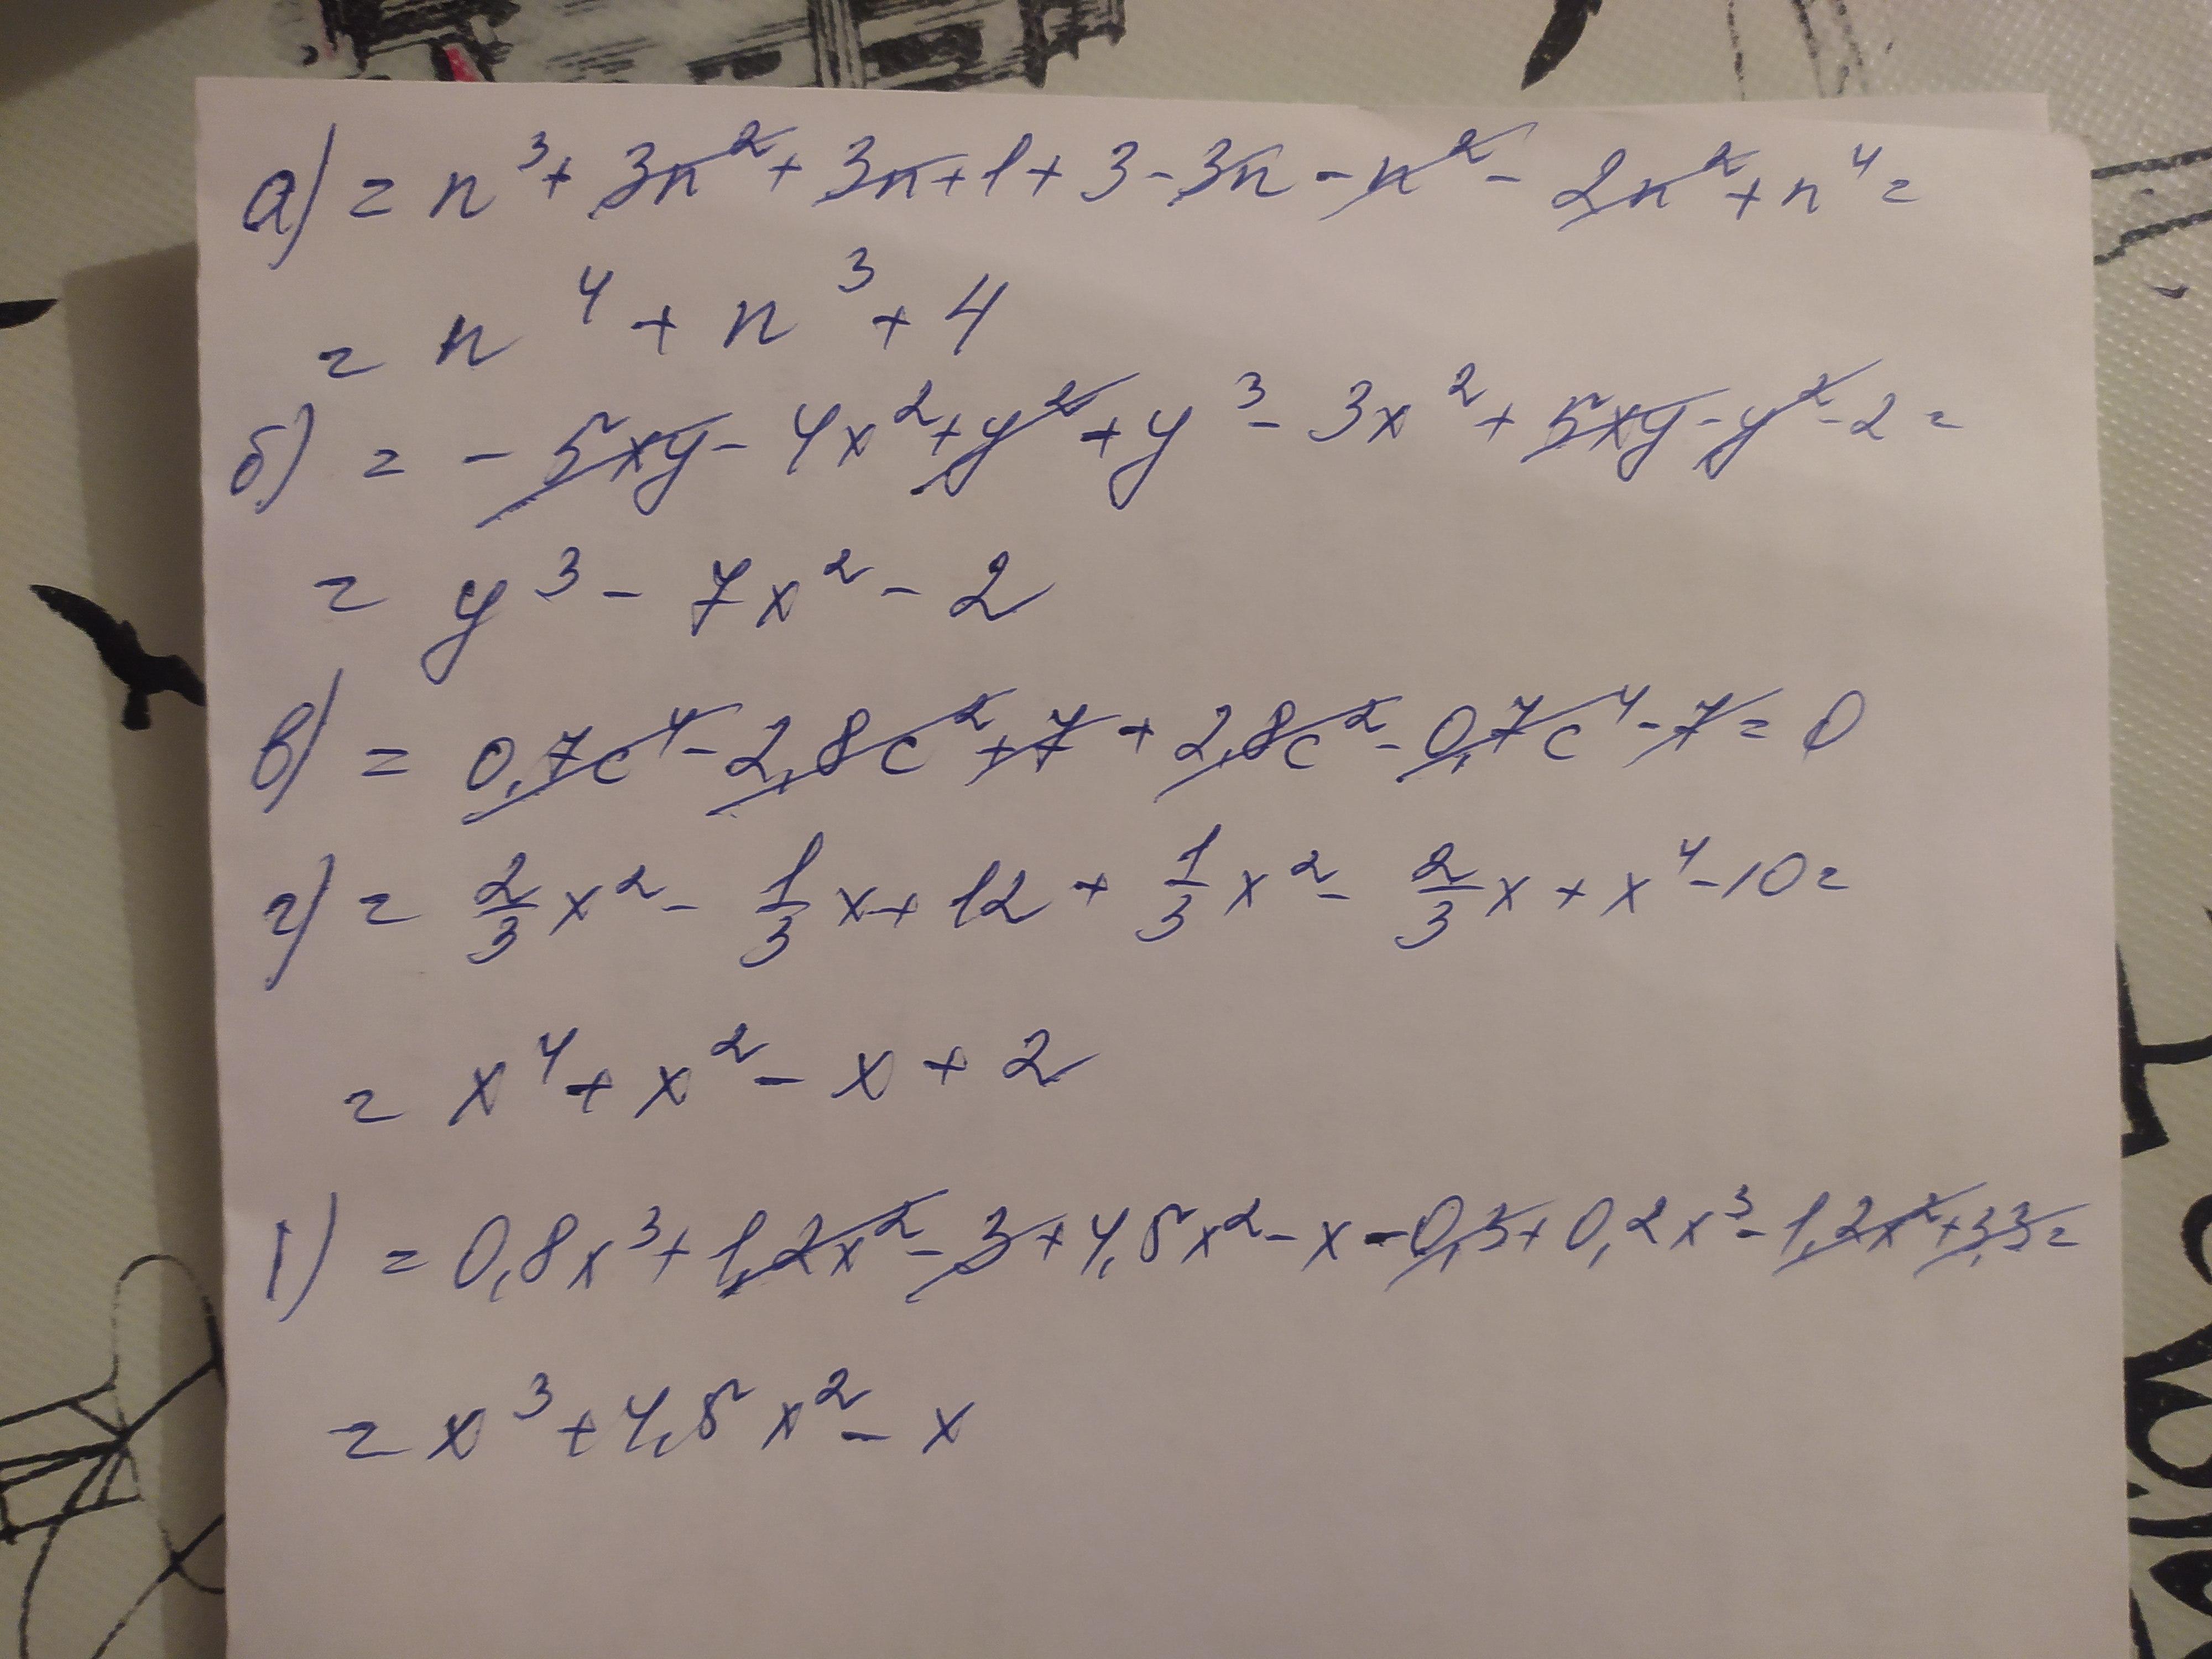 а) = n³ + 3n² + 3n + 1 + 3 - 3n - n² - 2n² + n⁴ =
= n⁴ + n³ + 4
б) = - 5xy - 4x² + y² + y³ - 3x² + 5xy - y² - 2 =
= y³ - 7x² - 2
в) = 0,7c⁴ - 2,8c² + 7 + 2,8c² - 0,7c⁴ - 7 = 0
г) = 2/3 x² - 1/3 x + 12 + 1/3 x² - 2/3 x + x⁴ - 10 =
= x⁴ + x² - x + 2
1) = 0,8x³ + 1,2x² - 3 + 4,5x² - x - 0,3 + 0,2x³ - 1,2x² + 3,3 =
= x³ + 4,5x² - x